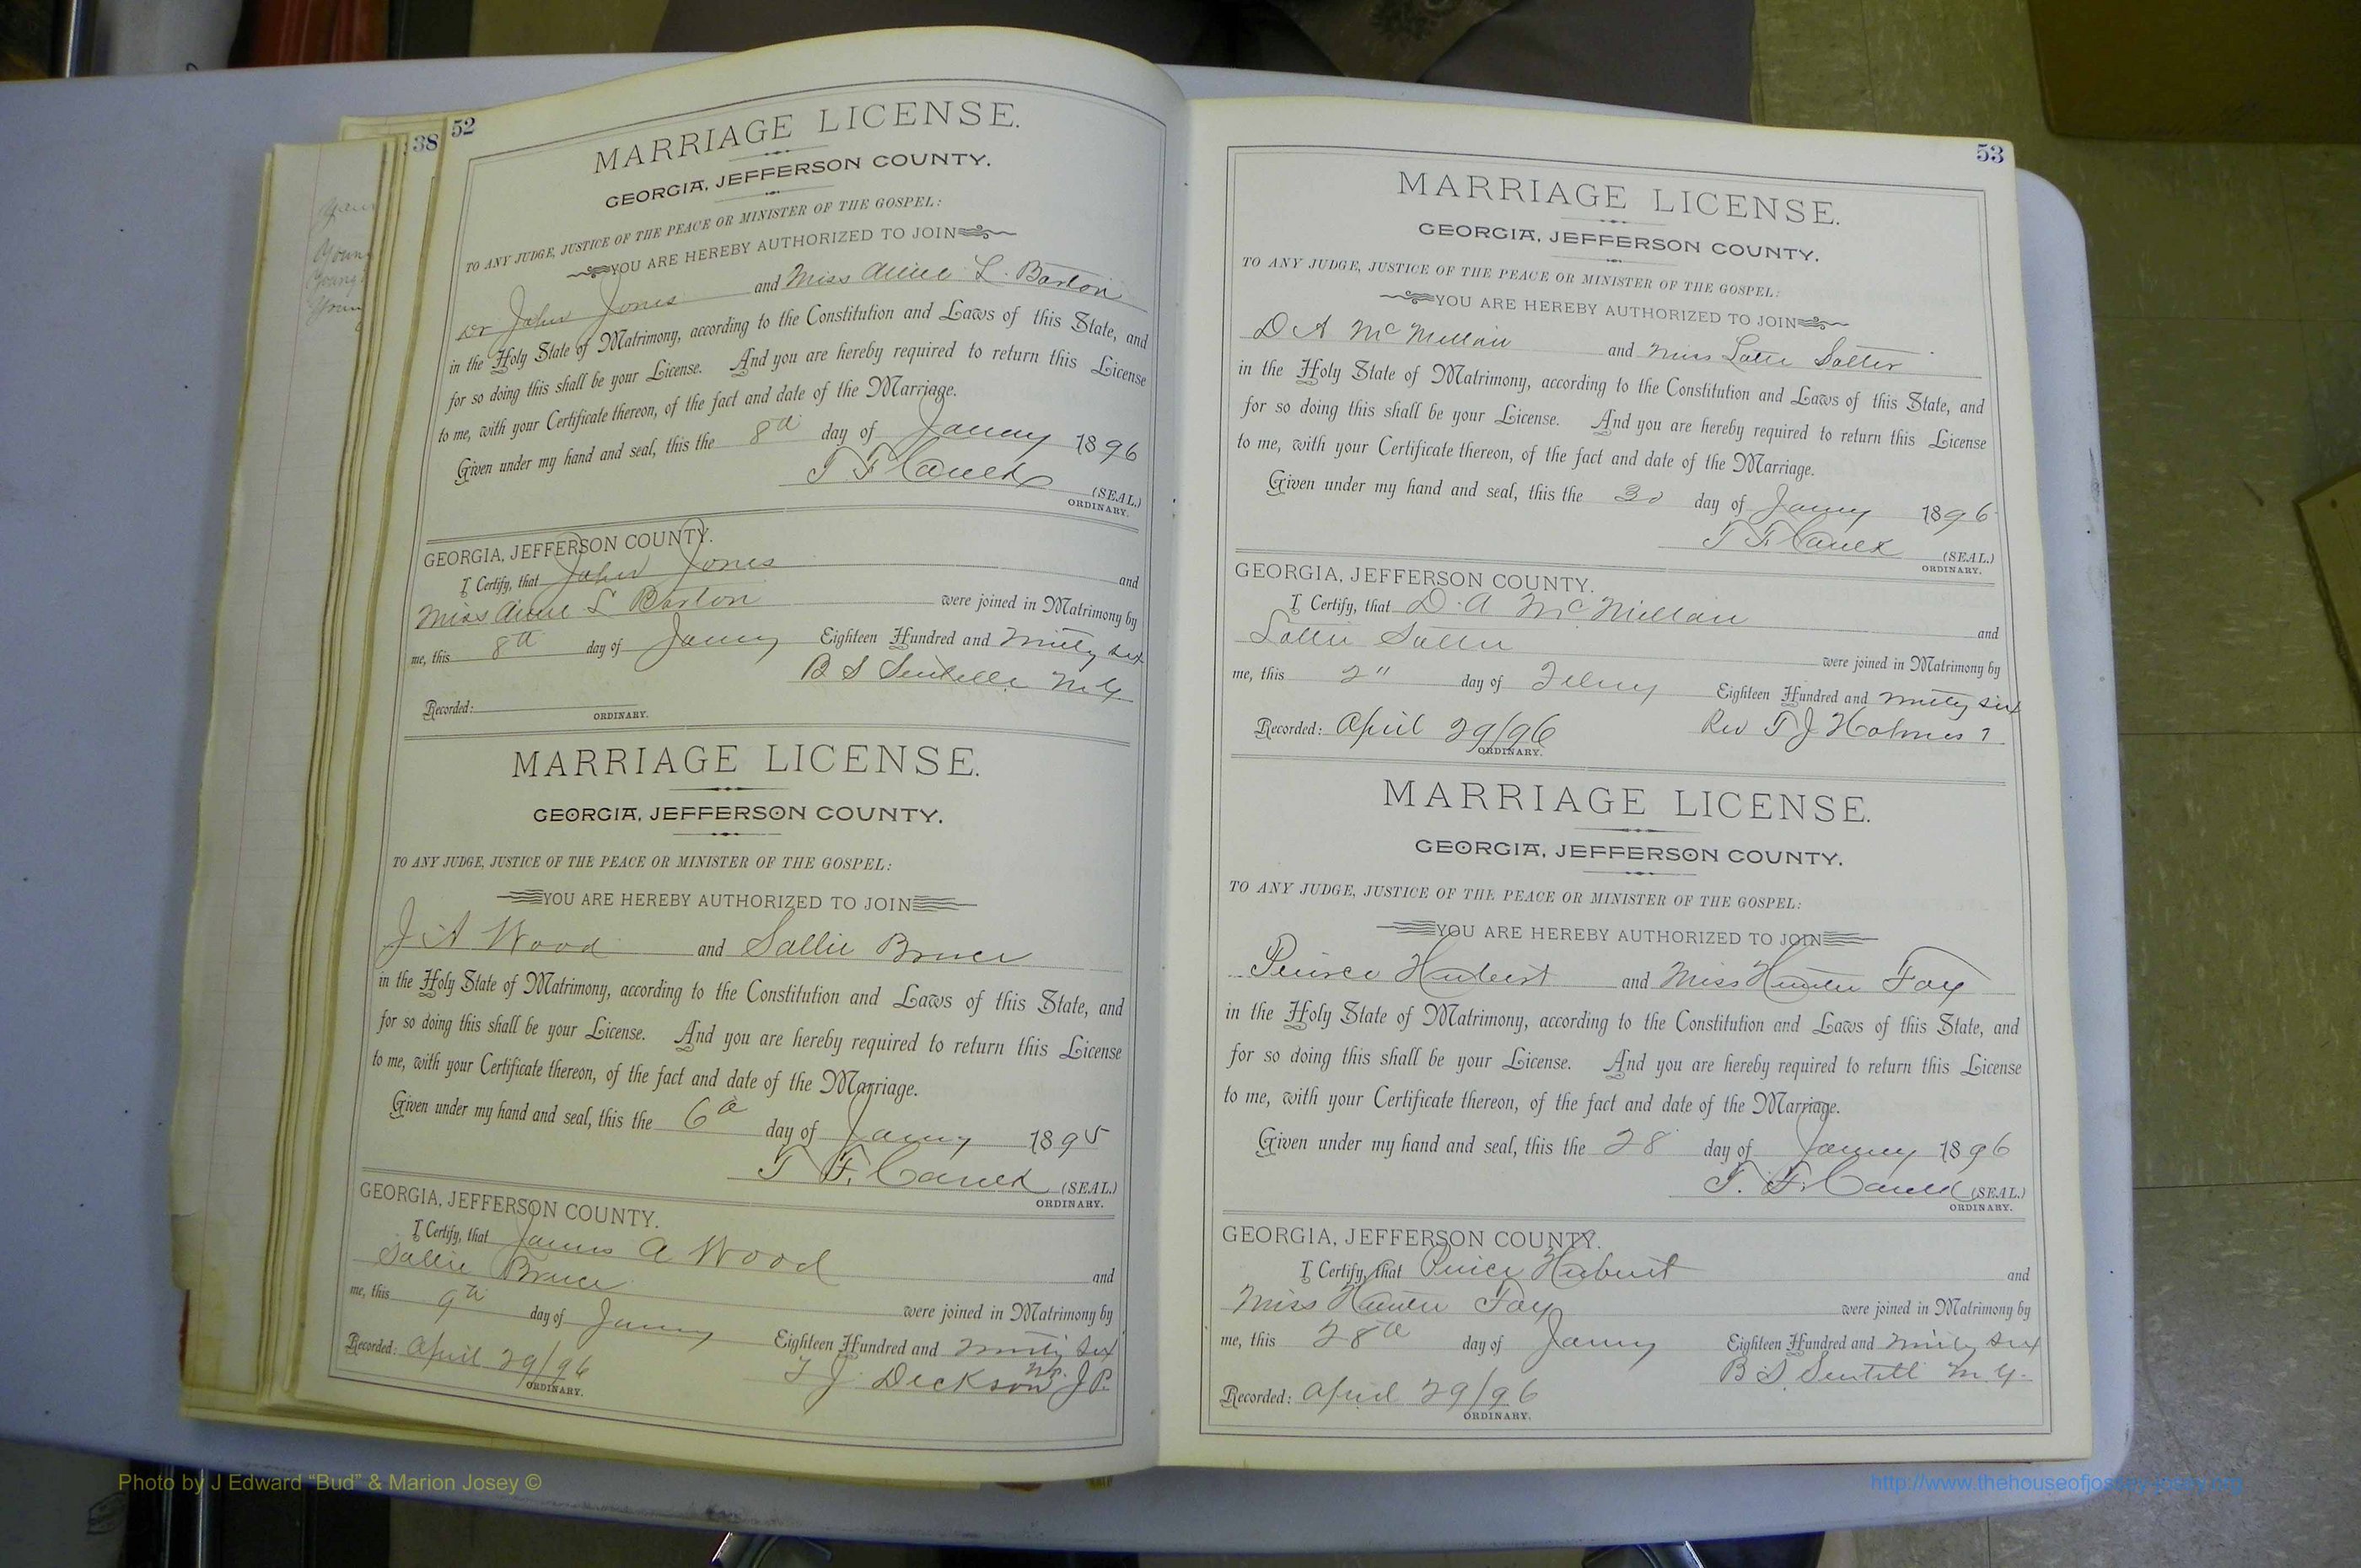 38
52
MARRIAGE LICENSE.
GEORGIA, JEFFERSON COUNTY.
TO ANY JUDGE, JUSTICE OF THE PEACE OR MINISTER OF THE GOSPEL:
YOU ARE HEREBY AUTHORIZED TO JOIN
Dr John Jones and Miss Annie L. Barton
in the Holy State of Matrimony, according to the Constitution and Laws of this State, and
for so doing this shall be your License. And you are hereby required to return this License
to me, with your Certificate thereon, of the fact and date of the Marriage.
Given under my hand and seal, this the 8th day of Jany 1896
T. F. (SEAL.)
ORDINARY.
GEORGIA, JEFFERSON COUNTY.
I Certify, that John Jones and
Miss Annie L Barton were joined in Matrimony by
me, this 8th day of Jany Eighteen Hundred and ninety six
B S Sentelle M.G.
Recorded:
ORDINARY.
MARRIAGE LICENSE.
GEORGIA, JEFFERSON COUNTY.
TO ANY JUDGE, JUSTICE OF THE PEACE OR MINISTER OF THE GOSPEL:
YOU ARE HEREBY AUTHORIZED TO JOIN
J A Wood and Sallie Bruce
in the Holy State of Matrimony, according to the Constitution and Laws of this State, and
for so doing this shall be your License. And you are hereby required to return this License
to me, with your Certificate thereon, of the fact and date of the Marriage.
Given under my hand and seal, this the 6th day of Jany 1895
T. F. (SEAL.)
ORDINARY.
GEORGIA, JEFFERSON COUNTY.
I Certify, that James A Wood and
Sallie Bruce were joined in Matrimony by
me, this 9th day of Jany Eighteen Hundred and ninety six
Recorded: April 29/96 T J Dickson N.P. J P.
ORDINARY.
53
MARRIAGE LICENSE.
GEORGIA, JEFFERSON COUNTY.
TO ANY JUDGE, JUSTICE OF THE PEACE OR MINISTER OF THE GOSPEL:
YOU ARE HEREBY AUTHORIZED TO JOIN
D A McMillan and Miss Salter
in the Holy State of Matrimony, according to the Constitution and Laws of this State, and
for so doing this shall be your License. And you are hereby required to return this License
to me, with your Certificate thereon, of the fact and date of the Marriage.
Given under my hand and seal, this the 30 day of Jany 1896
T F. (SEAL.)
ORDINARY.
GEORGIA, JEFFERSON COUNTY.
I Certify, that D. A McMillan and
Salter were joined in Matrimony by
me, this 2" day of Feby Eighteen Hundred and ninety six
Recorded: April 29/96 Rev T J Holmes
ORDINARY.
MARRIAGE LICENSE.
GEORGIA, JEFFERSON COUNTY.
TO ANY JUDGE, JUSTICE OF THE PEACE OR MINISTER OF THE GOSPEL:
YOU ARE HEREBY AUTHORIZED TO JOIN
Peirce Hubert and Miss Hunter Fay
in the Holy State of Matrimony, according to the Constitution and Laws of this State, and
for so doing this shall be your License. And you are hereby required to return this License
to me, with your Certificate thereon, of the fact and date of the Marriage.
Given under my hand and seal, this the 28 day of Jany 1896
T. F. (SEAL.)
ORDINARY.
GEORGIA, JEFFERSON COUNTY.
I Certify, that Peirce Hubert and
Miss Hunter Fay were joined in Matrimony by
me, this 28th day of Jany Eighteen Hundred and ninety six
B S. Sentell M.G.
Recorded: April 29/96
ORDINARY.
Photo by J Edward “Bud” & Marion Josey ©
http://www.thehouseofjossey-josey.org